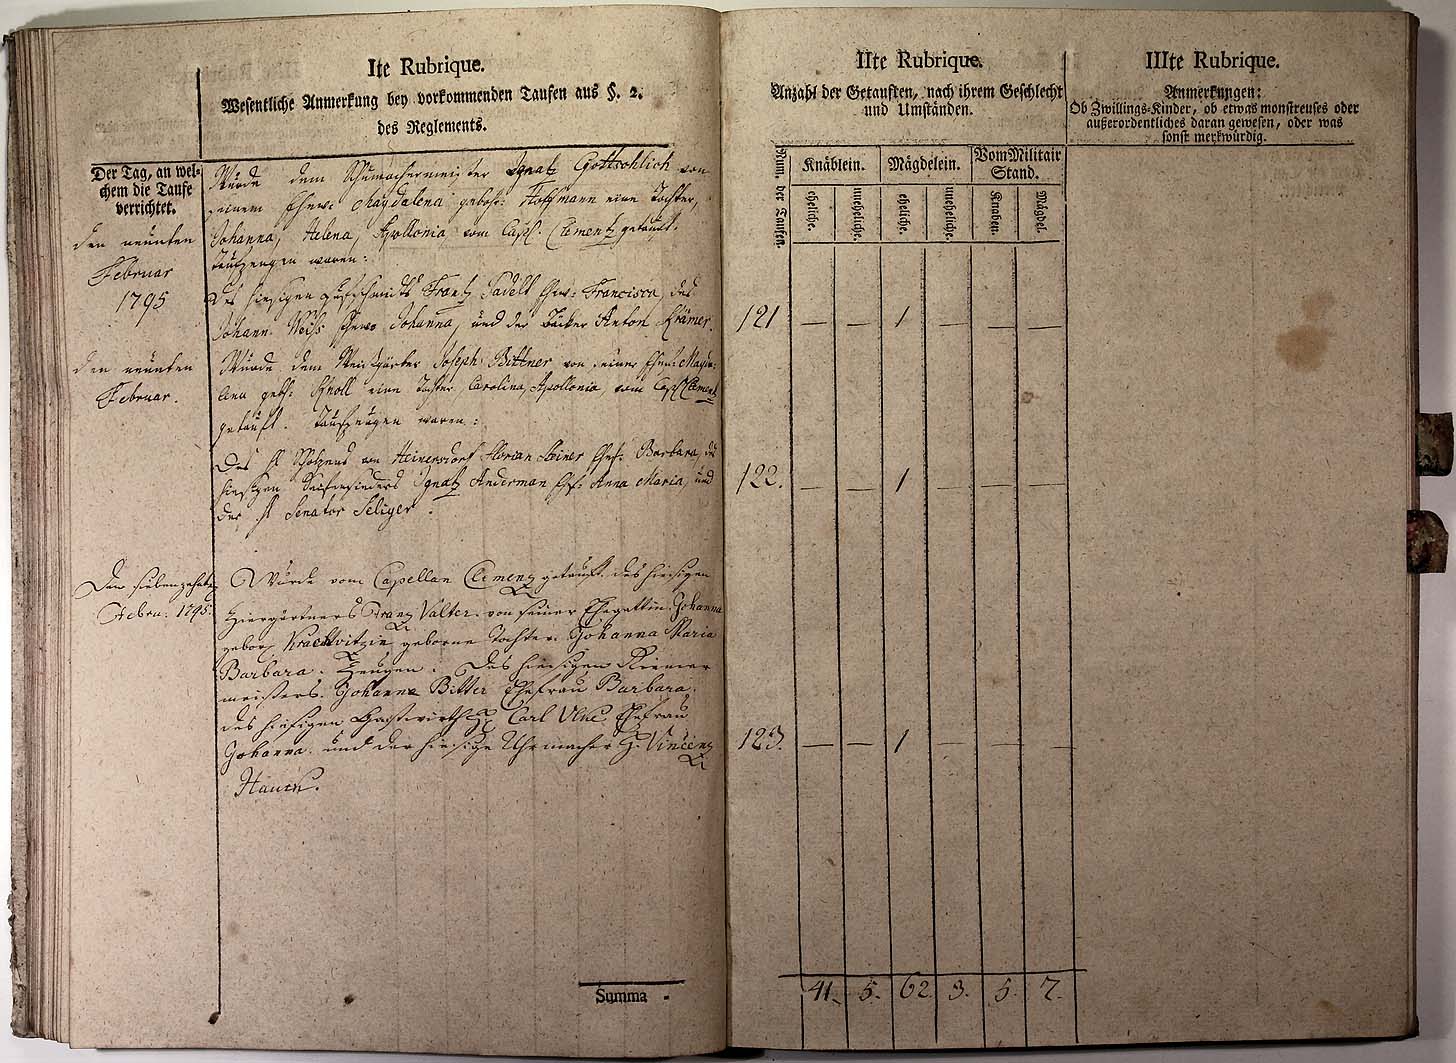 Ite Rubrique.
Wesentliche Anmerkung bey vorkommenden Taufen aus §. 2.
des Reglements.
Der Tag, an wel-
chem die Taufe
verrichtet.
den neunten
Februar
1795
Wurde dem Schumachermeister Ignatz Gottschlich von
seinem Ehew: Magdalena gebohr: Hoffmann eine Tochter,
Johanna, Helena, Apollonia vom Capl. Clementz getauft.
Taufzeugen waren:
Des hiesigen Frantz Ehw: Francisca, des
Johann Weiss Ehew: Johanna, und der Bäcker Anton Krämer.
den neunten
Februar.
Wurde dem Joseph Bittner von seiner Ehew: Magda-
lena geb: Knoll eine Tochter Carolina, Apollonia, vom Capl Clementz
getauft. Taufzeugen waren:
Des H Scholzens von Heinersdorf Florian Steiner Ehef: Barbara, des
hiesigen Seifensieders Ignatz Anderman Ehf: Anna Maria, und
der H Senator Seliger.
Den siebenzehnten
Febru: 1795
Wurde vom Capellan Clementz getauft. des hiesigen
Ziergärtners Frantz Valter. von seiner Ehegattin Johanna
gebor. geborne Tochter. Johanna Maria
Barbara. Zeugen. Des hiesigen Riemer
meisters. Johanne Bitter Ehefrau Barbara.
des hiesigen Gastwirth H Carl Ulke Ehefrau
Johanna. und der hiesige Uhrmacher H. Vincenz
Hauck.
Summa
IIte Rubrique.
Anzahl der Getauften, nach ihrem Geschlecht
und Umständen.
Num. der Taufen.
Knäblein.
Mägdelein.
Vom Militair
Stand.
eheliche.
uneheliche.
eheliche.
uneheliche.
Knaben.
Mägdel.
121 — — 1 — — —
122. — — 1 — — —
123. — — 1 — — —
41. 5. 62. 3. 5. 7.
IIIte Rubrique.
Anmerkungen:
Ob Zwillings-Kinder, ob etwas monstreuses oder
außerordentliches daran gewesen, oder was
sonst merkwürdig.